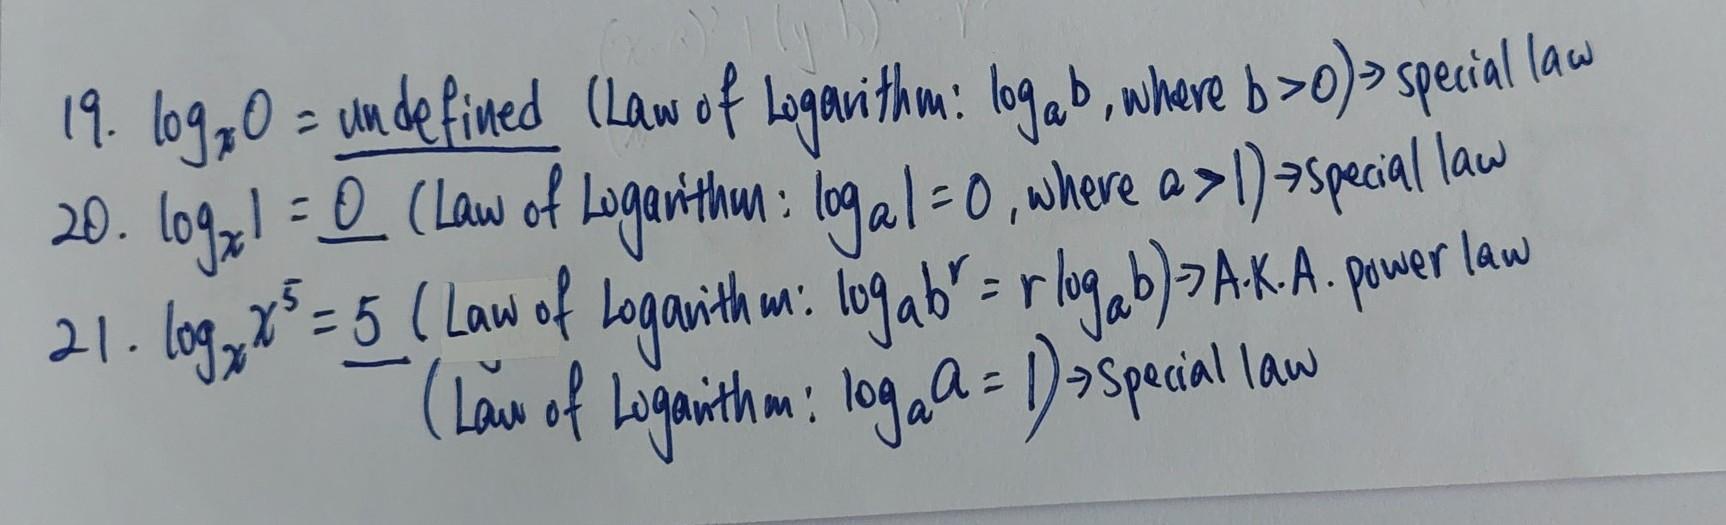 19. logₓ0 = undefined (Law of Logarithm: logₐb, where b>0)→ special law
20. logₓ1 = 0 (Law of Logarithm: logₐ1=0, where a>1)→special law
21. logₓx⁵ = 5 (Law of Logarithm: logₐbʳ = r logₐb)→A.K.A. power law
(Law of Logarithm: logₐa = 1)→special law